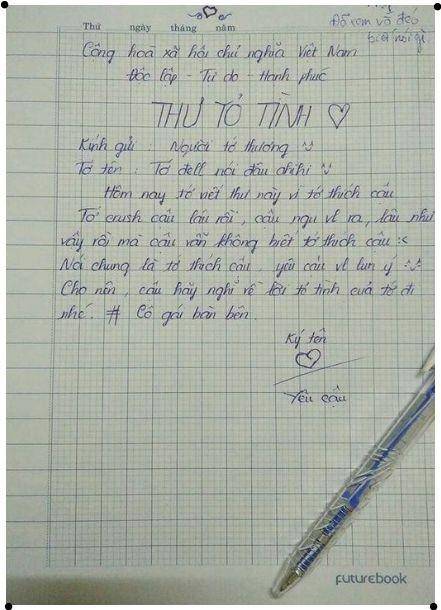 Thứ ngày tháng năm
Đồ rom vô đéo
biết nói gì
Cộng hoà xã hội chủ nghĩa Việt Nam
Độc lập - Tự do - Hạnh phúc
THƯ TỎ TÌNH ♡
Kính gửi : Người tớ thương
Tớ tên : Tớ dell nói đâu chihi
Hôm nay tớ viết thư này vì tớ thích cậu
Tớ crush cậu lâu rồi, cậu ngu vl ra, lâu như
vậy rồi mà cậu vẫn không biết tớ thích cậu :<
Nói chung là tớ thích cậu, yêu cậu vl lun ý
Cho nên, cậu hãy nghĩ về lời tỏ tình của tớ đi
nhé. # Cô gái bàn bên.
Ký tên
♡
Yêu cậu
FUTUREBOOK